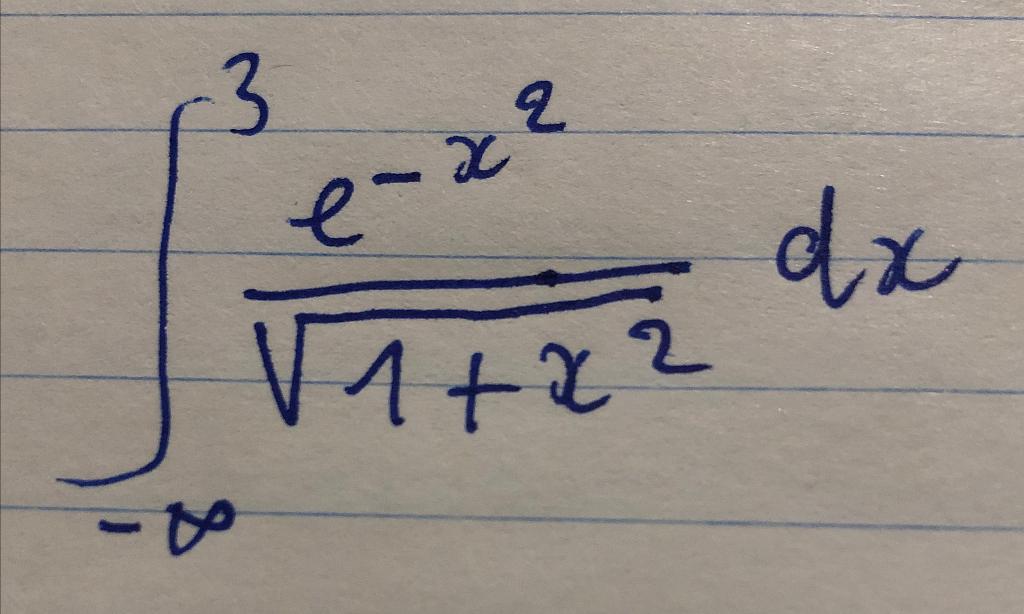 ∫_{-∞}^{3} \frac{e^{-x^2}}{\sqrt{1+x^2}} dx